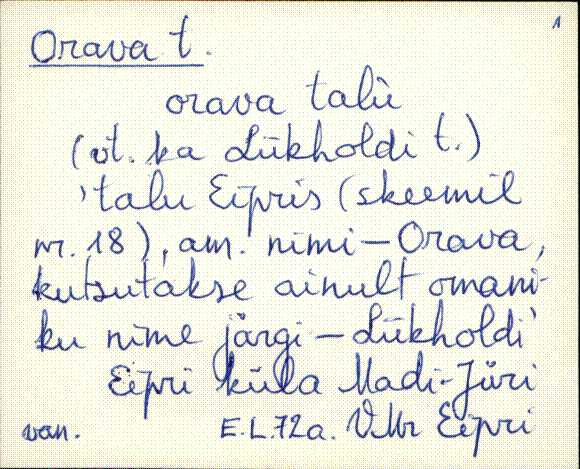 1
Orava t.
orava talu̇
(vt. ka Lükholdi t.)
'talu Eipris (skeemil
nr. 18), am. nimi – Orava,
kutsutakse ainult omani-
ku nime järgi – Lükholdi'
Eipri küla Madi-Jüri
van. E.L.72a. VMr Eipri